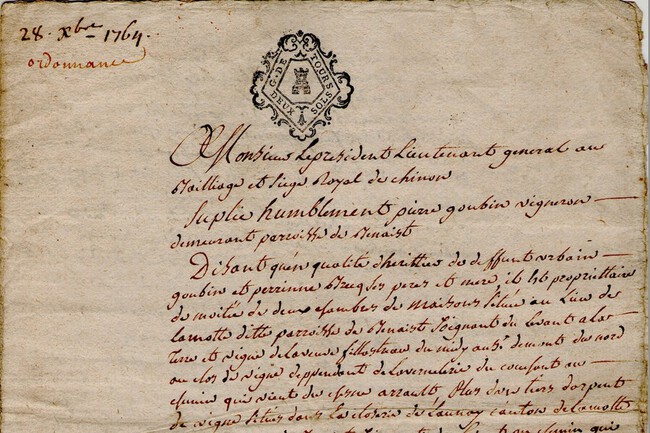 28. Xbre 1764.
ordonnance
G. DE TOURS
DEUX SOLS
A Monsieur Le president Lieutenant general au
Bailliage et siege Royal de chinon
Suplie humblement pierre goubin vigneron
demeurant parroisse de Benaist
Disant qu'en qualité d'heritier de deffunt urbain
goubin et perrinne peres et mere, il est proprietaire
de moitié de deux chambres de maisons situé au Lieu de
lamotte ditte parroisse de Benaist Joignant du levant a la
terre et vigne de la veuve du midy aussi du nord
au clos de vigne deppendant de du couchant au
chemin qui vient de arrault, Plus de tiers d'arpent
de vigne situés dans la closerie de Launay canton de lamotte
chemin qui